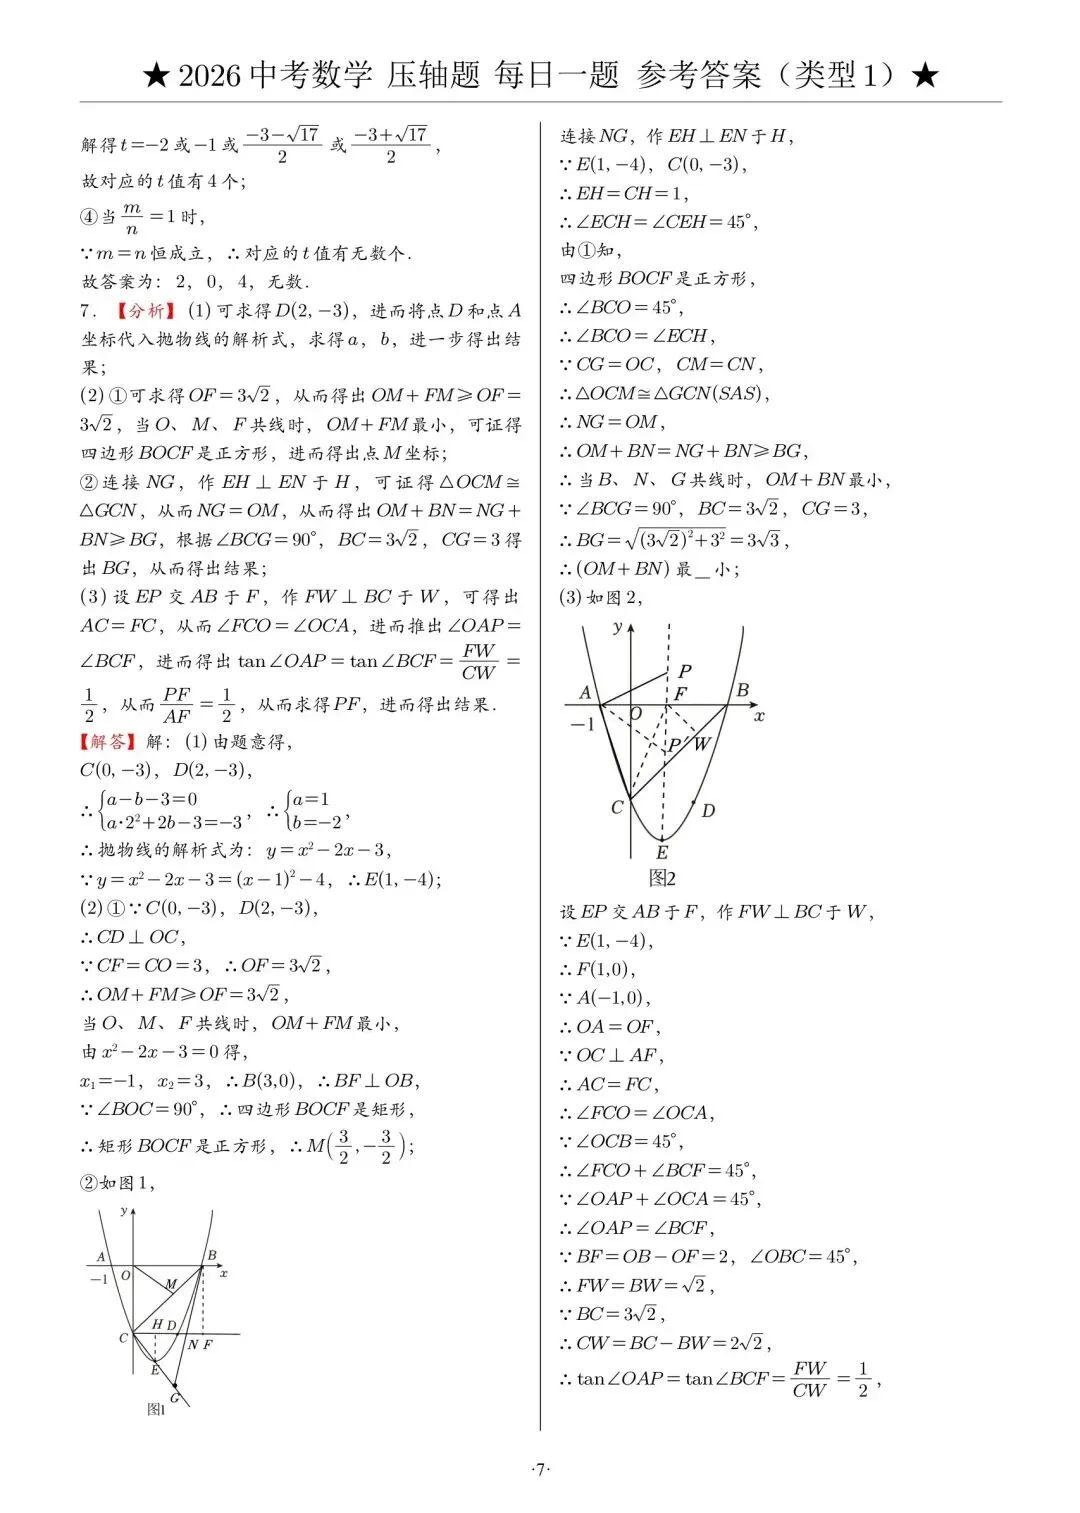 ★ 2026 中考数学 压轴题 每日一题 参考答案（类型 1）★
解得 t=-2 或 -1 或 \frac{-3-\sqrt{17}}{2} 或 \frac{-3+\sqrt{17}}{2}，
故对应的 t 值有 4 个；
④当 \frac{m}{n}=1 时，
∵m=n 恒成立，∴对应的 t 值有无数个.
故答案为：2，0，4，无数.
7．【分析】(1) 可求得 D(2,-3)，进而将点 D 和点 A
坐标代入抛物线的解析式，求得 a，b，进一步得出结
果；
(2) ①可求得 OF=3√2，从而得出 OM+FM⩾OF=
3√2，当 O、M、F 共线时，OM+FM 最小，可证得
四边形 BOCF 是正方形，进而得出点 M 坐标；
②连接 NG，作 EH⊥EN 于 H，可证得 △OCM≅
△GCN，从而 NG=OM，从而得出 OM+BN=NG+
BN⩾BG，根据 ∠BCG=90°，BC=3√2，CG=3 得
出 BG，从而得出结果；
(3) 设 EP 交 AB 于 F，作 FW⊥BC 于 W，可得出
AC=FC，从而 ∠FCO=∠OCA，进而推出 ∠OAP=
∠BCF，进而得出 tan∠OAP=tan∠BCF=\frac{FW}{CW}=
\frac{1}{2}，从而 \frac{PF}{AF}=\frac{1}{2}，从而求得 PF，进而得出结果.
【解答】解：(1) 由题意得，
C(0,-3)，D(2,-3)，
∴{a-b-3=0 a·2²+2b-3=-3，∴{a=1 b=-2，
∴抛物线的解析式为：y=x²-2x-3，
∵y=x²-2x-3=(x-1)²-4，∴E(1,-4)；
(2) ①∵C(0,-3)，D(2,-3)，
∴CD⊥OC，
∵CF=CO=3，∴OF=3√2，
∴OM+FM⩾OF=3√2，
当 O、M、F 共线时，OM+FM 最小，
由 x²-2x-3=0 得，
x₁=-1，x₂=3，∴B(3,0)，∴BF⊥OB，
∵∠BOC=90°，∴四边形 BOCF 是矩形，
∴矩形 BOCF 是正方形，∴M(\frac{3}{2},-\frac{3}{2})；
②如图 1，
y
A
B
-1
O
x
M
H D
C
N F
E
G
图1
连接 NG，作 EH⊥EN 于 H，
∵E(1,-4)，C(0,-3)，
∴EH=CH=1，
∴∠ECH=∠CEH=45°，
由①知，
四边形 BOCF 是正方形，
∴∠BCO=45°，
∴∠BCO=∠ECH，
∵CG=OC，CM=CN，
∴△OCM≅△GCN(SAS)，
∴NG=OM，
∴OM+BN=NG+BN⩾BG，
∴当 B、N、G 共线时，OM+BN 最小，
∵∠BCG=90°，BC=3√2，CG=3，
∴BG=\sqrt{(3√2)²+3²}=3√3，
∴(OM+BN) 最_小；
(3) 如图 2，
y
P
A
F
B
-1
O
x
P′
W
C
D
E
图2
设 EP 交 AB 于 F，作 FW⊥BC 于 W，
∵E(1,-4)，
∴F(1,0)，
∵A(-1,0)，
∴OA=OF，
∵OC⊥AF，
∴AC=FC，
∴∠FCO=∠OCA，
∵∠OCB=45°，
∴∠FCO+∠BCF=45°，
∵∠OAP+∠OCA=45°，
∴∠OAP=∠BCF，
∵BF=OB-OF=2，∠OBC=45°，
∴FW=BW=√2，
∵BC=3√2，
∴CW=BC-BW=2√2，
∴tan∠OAP=tan∠BCF=\frac{FW}{CW}=\frac{1}{2}，
·7·